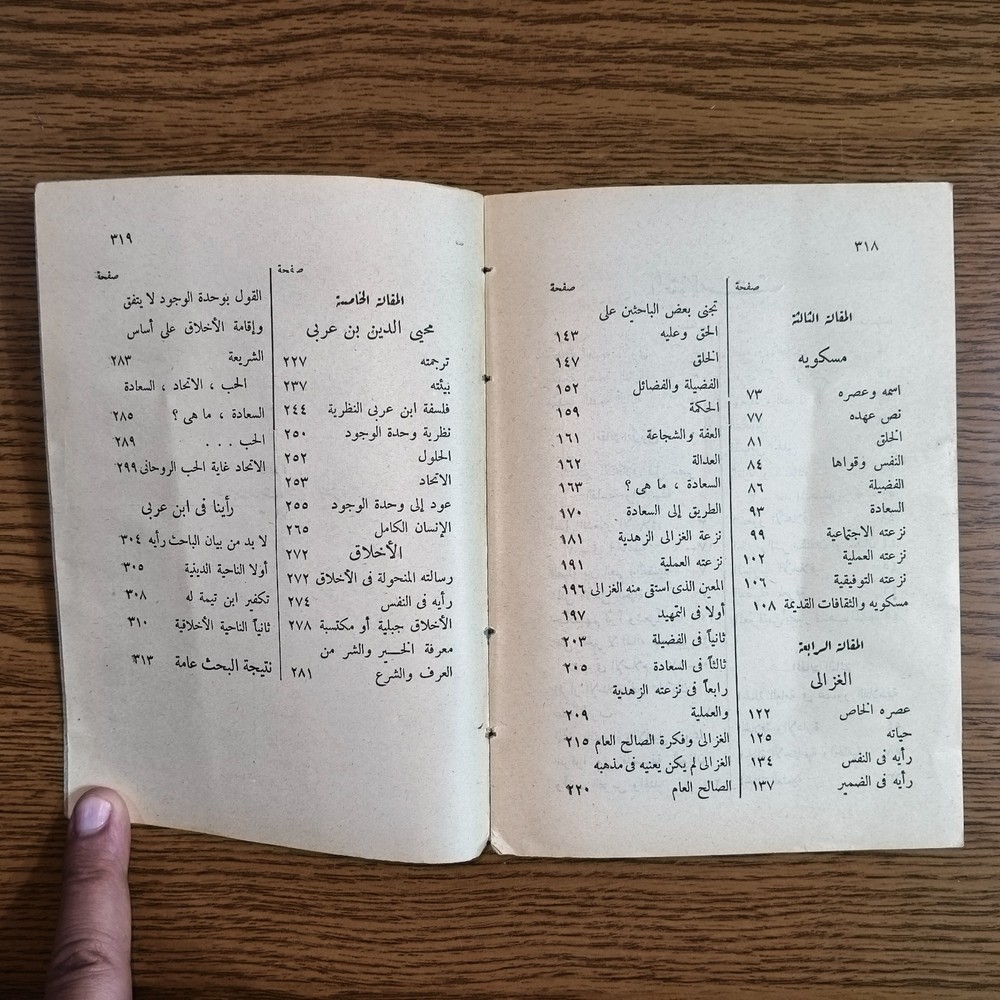 ٣١٨
صفحة
المقالة الثالثة
مسكويه
اسمه وعصره ٧٣
نص عهده ٧٧
الخلق ٨١
النفس وقواها ٨٤
الفضيلة ٨٦
السعادة ٩٣
نزعته الاجتماعية ٩٩
نزعته العملية ١٠٢
نزعته التوفيقية ١٠٦
مسكويه والثقافات القديمة ١٠٨
المقالة الرابعة
الغزالى
عصره الخاص ١٢٢
حياته ١٢٥
رأيه فى النفس ١٣٤
رأيه فى الضمير ١٣٧
صفحة
تجنى بعض الباحثين على
الحق وعليه ١٤٣
الخلق ١٤٧
الفضيلة والفضائل ١٥٢
الحكمة ١٥٩
العفة والشجاعة ١٦١
العدالة ١٦٢
السعادة ، ما هى ؟ ١٦٣
الطريق إلى السعادة ١٧٠
نزعة الغزالى الزهدية ١٨١
نزعته العملية ١٩١
المعين الذى استقى منه الغزالى ١٩٦
أولا فى التمهيد ١٩٧
ثانياً فى الفضيلة ٢٠٣
ثالثاً فى السعادة ٢٠٥
رابعاً فى نزعته الزهدية
والعملية ٢٠٩
الغزالى وفكرة الصالح العام ٢١٥
الغزالى لم يكن يعنيه فى مذهبه
الصالح العام ٢٢٠
٣١٩
صفحة
المقالة الخامسة
محيى الدين بن عربى
ترجمته ٢٢٧
بيئته ٢٣٧
فلسفة ابن عربى النظرية ٢٤٤
نظرية وحدة الوجود ٢٥٠
الحلول ٢٥٢
الاتحاد ٢٥٣
عود إلى وحدة الوجود ٢٥٥
الإنسان الكامل ٢٦٥
الأخلاق ٢٧٢
رسالته المنحولة فى الأخلاق ٢٧٢
رأيه فى النفس ٢٧٤
الأخلاق جبلية أو مكتسبة ٢٧٨
معرفة الخير والشر من
العرف والشرع ٢٨١
صفحة
القول بوحدة الوجود لا يتفق
وإقامة الأخلاق على أساس
الشريعة ٢٨٣
الحب ، الاتحاد ، السعادة
السعادة ، ما هى ؟ ٢٨٥
الحب . . . ٢٨٩
الاتحاد غاية الحب الروحانى ٢٩٩
رأينا فى ابن عربى
لا بد من بيان الباحث رأيه ٣٠٤
أولا الناحية الدينية ٣٠٥
تكفير ابن تيمة له ٣٠٨
ثانياً الناحية الأخلاقية ٣١٠
نتيجة البحث عامة ٣١٣